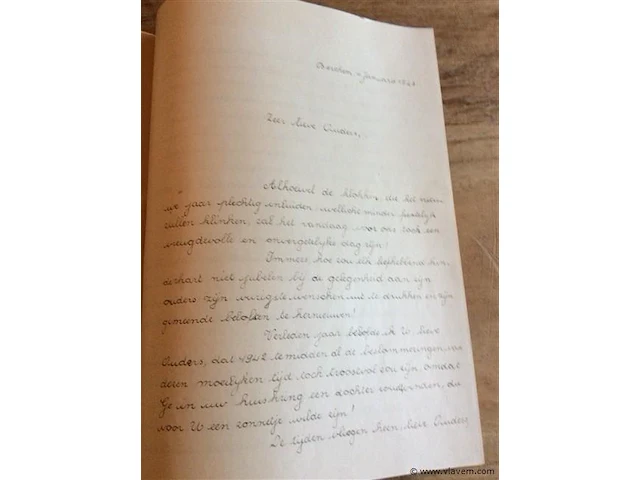 Berchem, 1 Januari 1943
Zeer lieve Ouders,
Alhoewel de klokken, die het nieu-
we jaar plechtig inluiden, wellicht minder feestelijk
zullen klinken, zal het vandaag voor ons toch een
vreugdevolle en onvergetelijke dag zijn!
Immers, hoe zou een liefhebbend kin-
derhart niet jubelen bij de gelegenheid aan zijn
ouders zijn vurigste wenschen uit te drukken en zijn
gemeende beloften te hernieuwen!
Verleden jaar beloofde ik U lieve
Ouders, dat 1942 te midden al de beslommeringen van
deren moeilijken tijd, toch troostvol zou zijn, omdat
Ge in uw huiskring een dochter zoudt vinden, die
voor U een zonnetje wilde zijn!
De tijden vliegen heen, lieve Ouders,
© www.vlavem.com